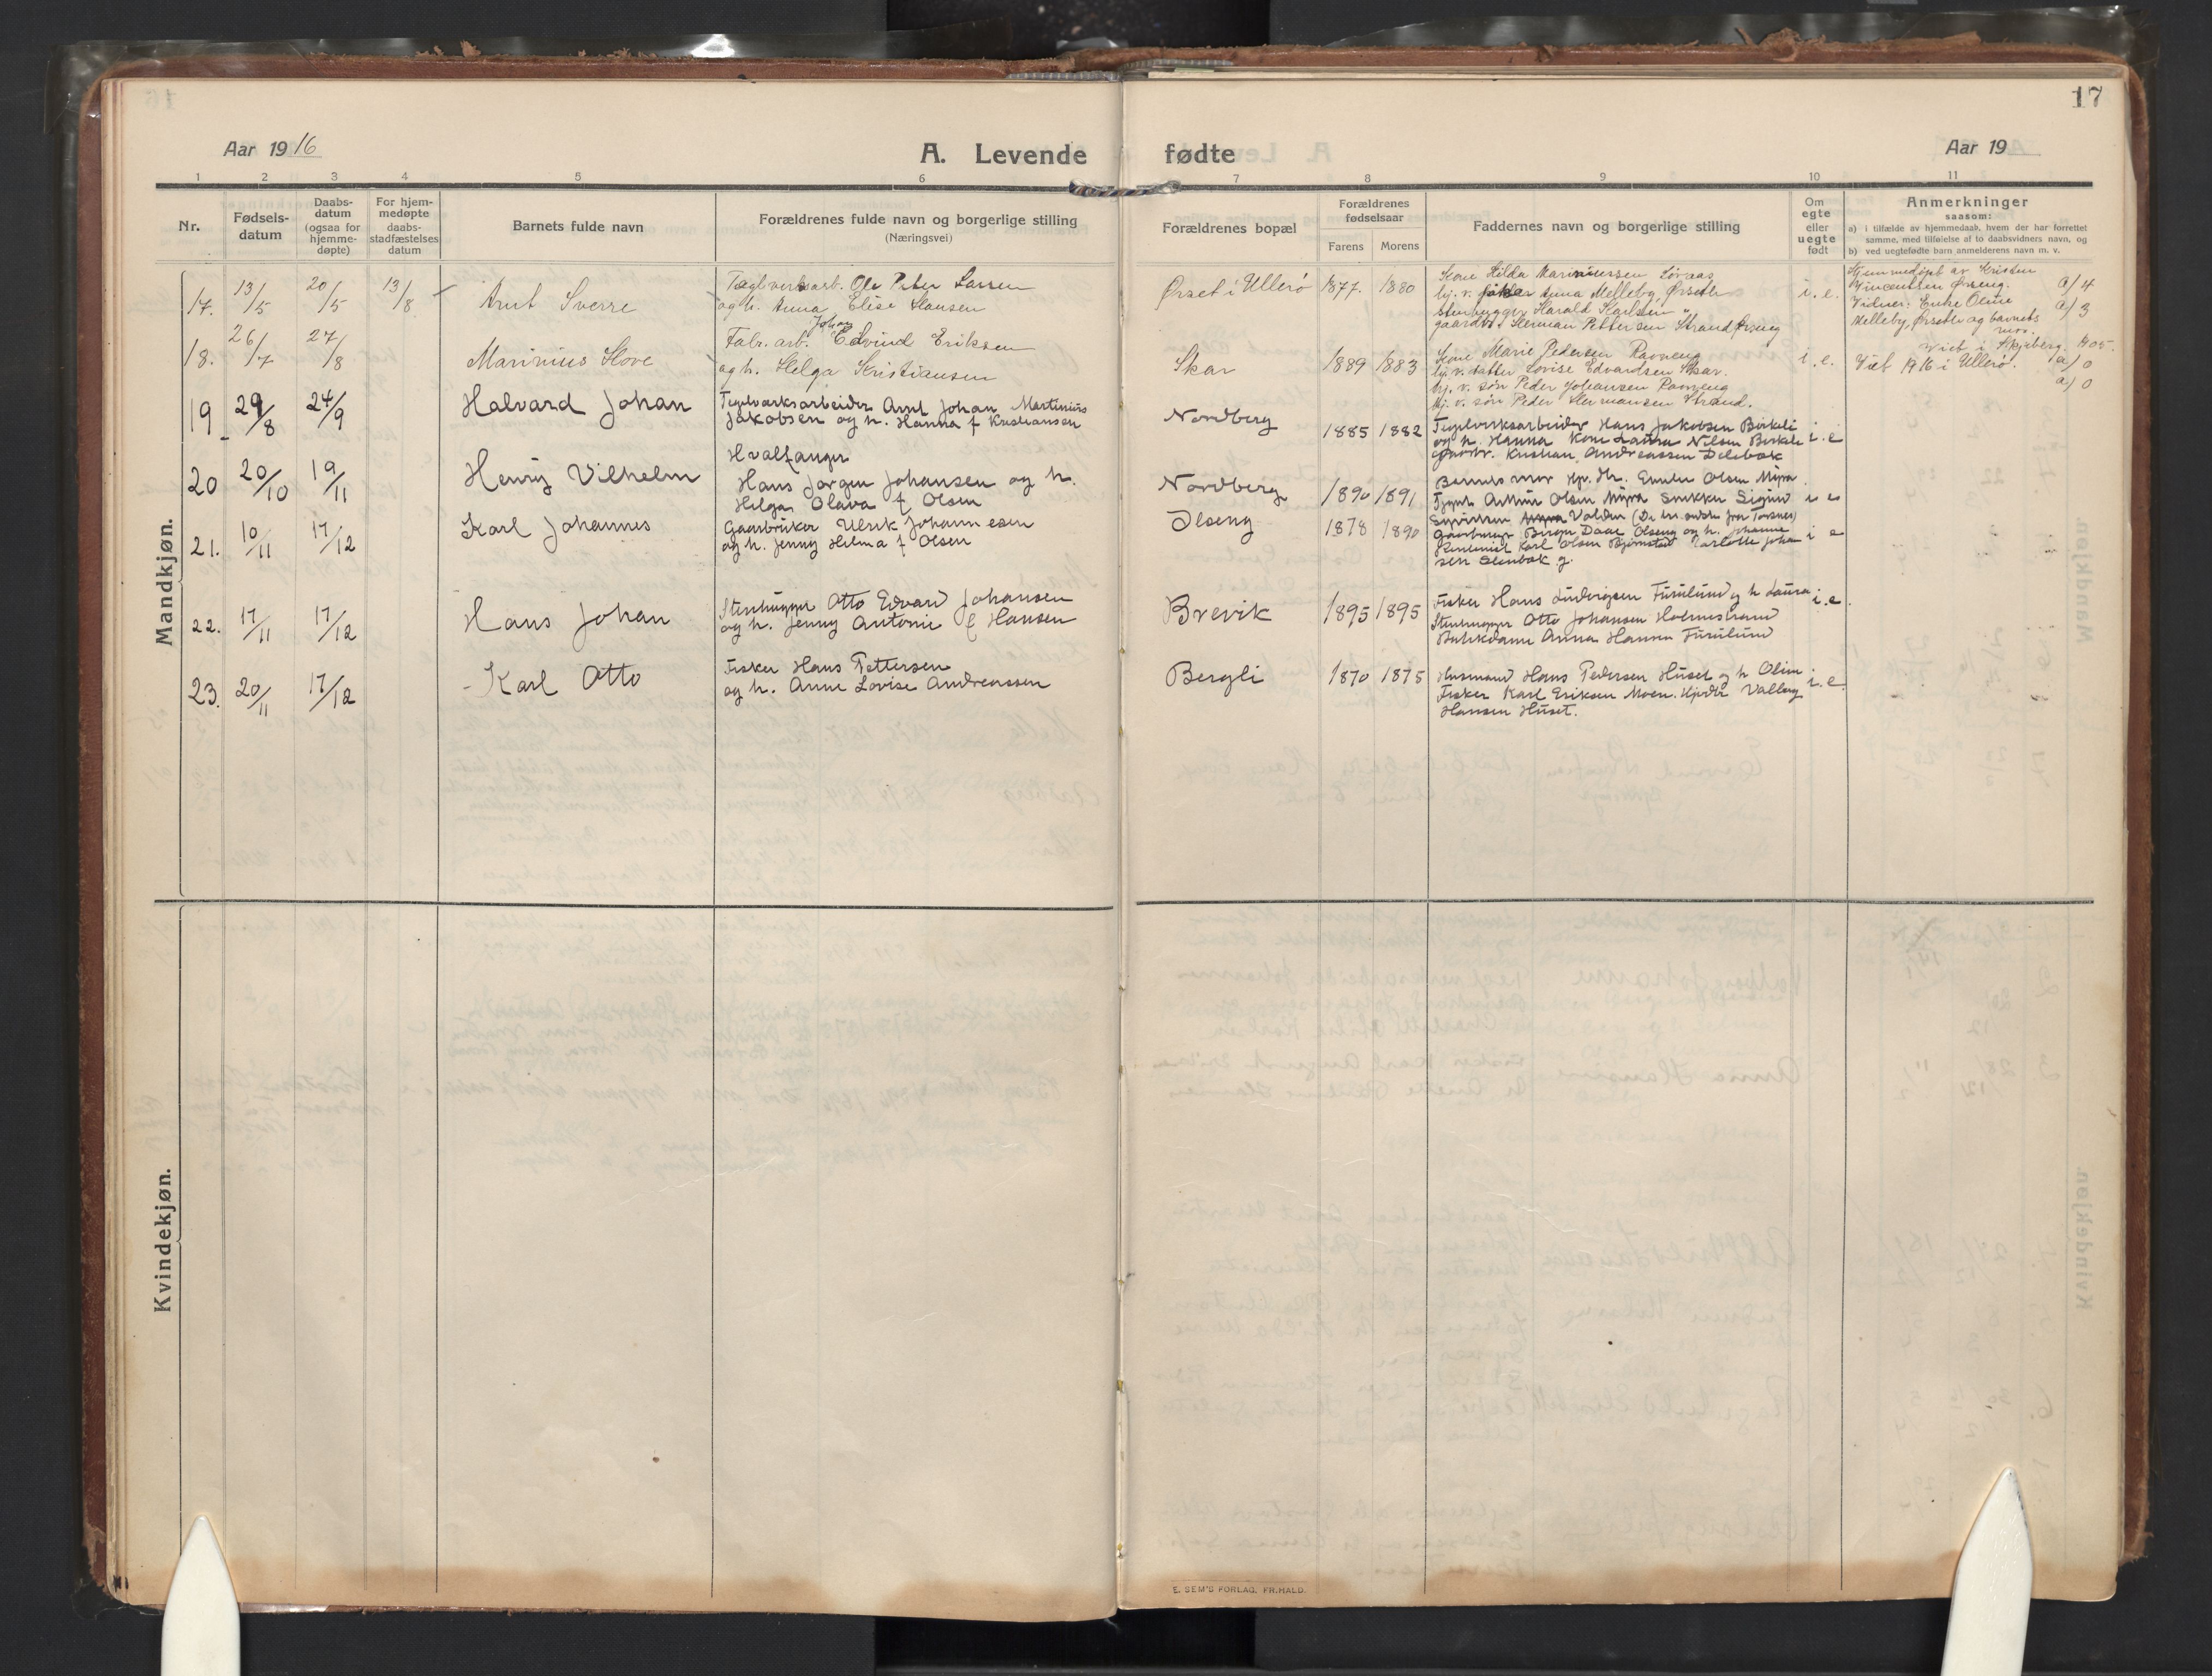 17
Aar 1916
A. Levende fødte
Aar 19
1 2 3 4 5 6 7 8 9 10 11
Nr.
Fødsels-
datum
Daabs-
datum
(ogsaa for
hjemme-
døpte)
For hjem-
medøpte
daabs-
stadfæstelses
datum
Barnets fulde navn
Forældrenes fulde navn og borgerlige stilling
(Næringsvei)
Forældrenes bopæl
Forældrenes
fødselsaar
Farens Morens
Faddernes navn og borgerlige stilling
Om
egte
eller
uegte
født
Anmerkninger
saasom:
a) i tilfælde av hjemmedaab, hvem der har forrettet
samme, med tilføielse af to daabsvidners navn, og
b) ved uegtefødte barn anmelderens navn m. v.
Mandkjøn.
17. 13/5 20/5 13/8 Arnt Sverre
Teglverksarb. Ole Peter Larsen
og h. Anna Elise Hansen
Ørset i Ullerö 1877. 1880
Kone Hilda Marinussen
hj. v. Anna Melleby, Ørseth
Harald Karlsen
Herman Pettersen Strand Ørseng
i. e.
Hjemmedöpt av Kristen
Vincentsen Ørseng. a/4
Vidner: Enke Oline a/3
Melleby, Ørseth og barnets
mor.
18. 26/7 27/8 Marinius Hove
Johan
Fabr. arb. Edvind Eriksen
og h. Helga Kristiansen
Skar 1889 1883
Kone Marie Pedersen Ramneng
hj. v. datter Lovise Edvardsen Skar.
hj. v. søn Peder Johansen Ramneng
hj. v. søn Peder Hermansen Strand.
i. e.
Viet i Skjeberg. 1905.
Viet 1916 i Ullerö. a/0
a/0
19 29/8 24/9 Halvard Johan
Tegelværksarbeider Arnt Johan Martinius
Jakobsen og h. Hanna f Kristiansen
Nordberg 1885 1882
Tegelverksarbeider Hans Jakobsen Birkeli
og h. Hanna Kone Laura Nilsen Birkeli
Kristian Andreassen
i. e
20 20/10 19/11 Henry Vilhelm
Hvalfanger
Hans Jørgen Johansen og h.
Helga Olava f Olsen
Nordberg 1890 1891
Barnets mor Olsen Myra
Arthur Olsen Myra Snekker Sigurd
i e
21. 10/11 17/12 Karl Johannes
Gaarbruker Ulrik Johannesen
og h. Jenny Helma f Olsen
Olseng 1878 1890
Olseng og h. Johanne
Karl Olsen Bjørnstad Johan
sen
i e
22. 17/11 17/12 Hans Johan
Stenhugger Otto Edvard Johansen
og h. Jenny Antonie f Hansen
Brevik 1895 1895
Fisker Hans Ludvigsen Furulund og h Laura
Stenhugger Otto Johansen Holmestrand
Butikdame Anna Hansen Furulund
i. e.
23. 20/11 17/12 Karl Otto
Fisker Hans Pettersen
og h. Anne Lovise Andreassen
Bergli 1870 1875
Husmand Hans Pedersen Huset og h Oline
Fisker Karl Eriksen Moen. Valborg
Hansen Huset.
i. e.
Kvindekjøn.
E. SEM'S FORLAG, FR.HALD.